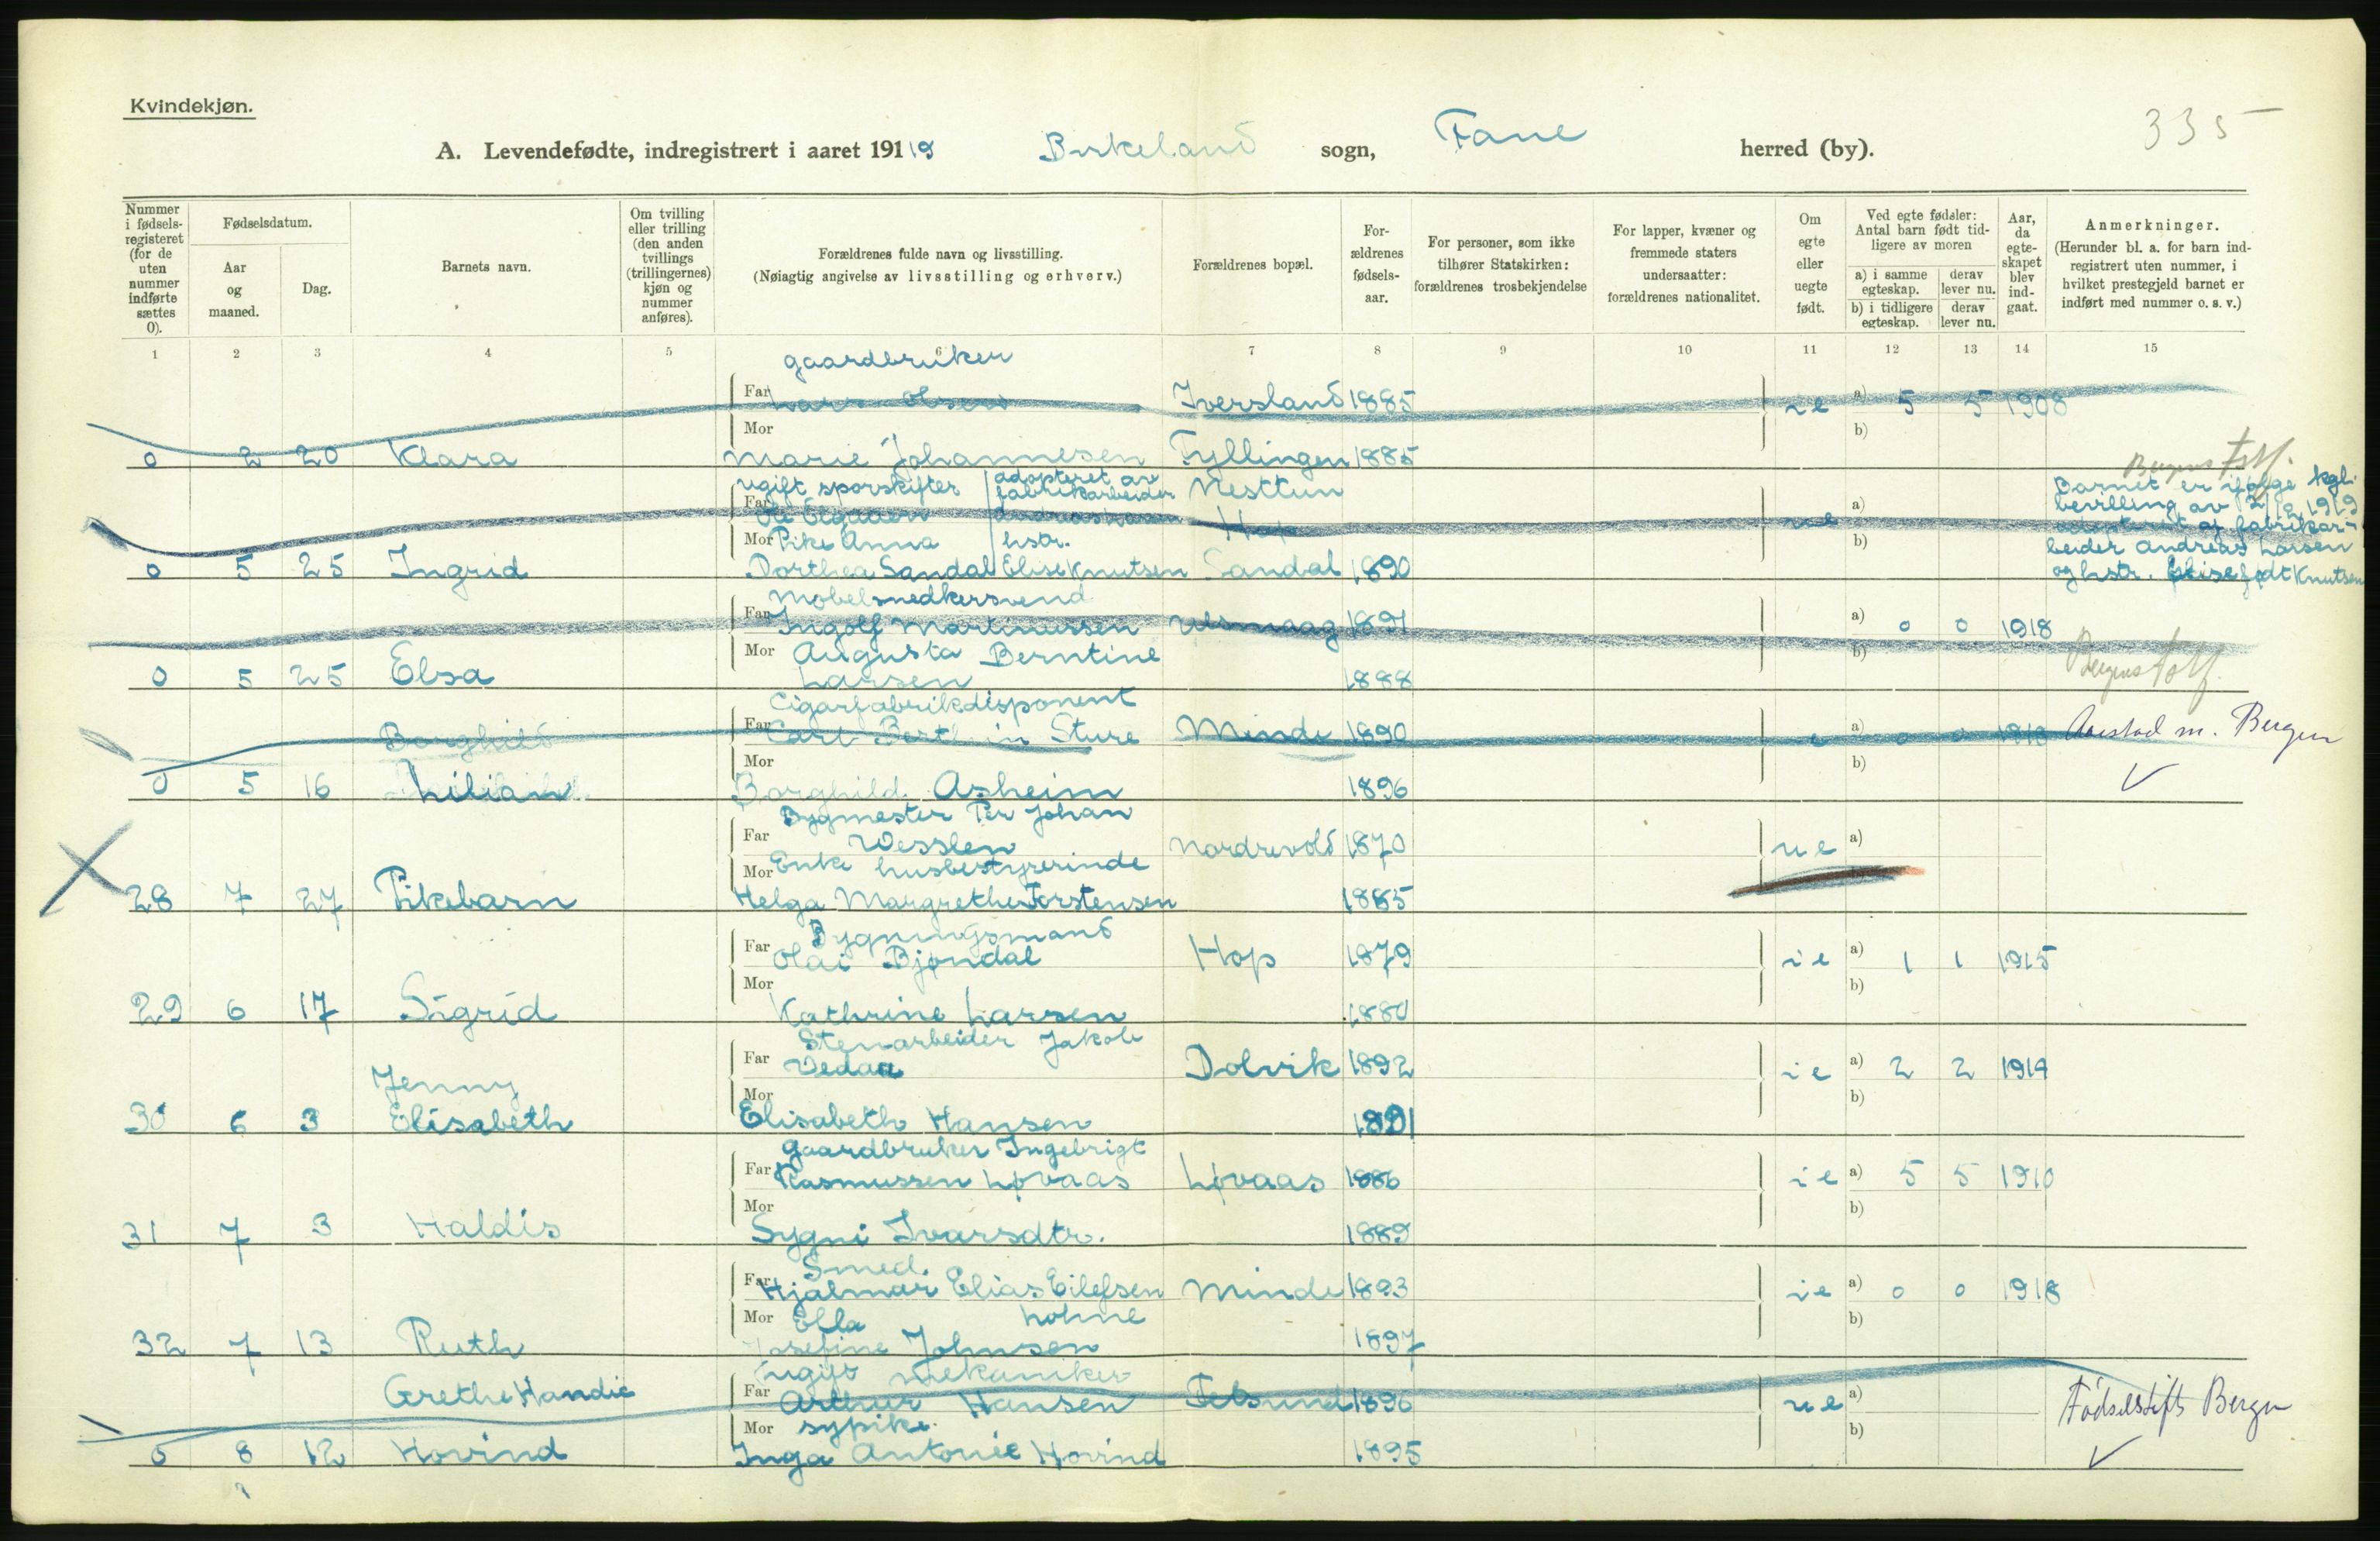 Kvindekjøn.
335
A. Levendefødte, indregistrert i aaret 19119 Birkeland sogn, Fane herred (by).
Nummer i fødsels-registeret (for de uten nummer indførte sættes 0).
Fødselsdatum.
Aar og maaned.
Dag.
Barnets navn.
Om tvilling eller trilling (den anden tvillings (trillingernes) kjøn og nummer anføres).
Forældrenes fulde navn og livsstilling.
(Nøiagtig angivelse av livsstilling og erhverv.)
Forældrenes bopæl.
For-ældrenes fødsels-aar.
For personer, som ikke tilhører Statskirken: forældrenes trosbekjendelse
For lapper, kvæner og fremmede staters undersaatter: forældrenes nationalitet.
Om egte eller uegte født.
Ved egte fødsler: Antal barn født tid-ligere av moren
a) i samme egteskap.
derav lever nu.
b) i tidligere egteskap.
derav lever nu.
Aar, da egte-skapet blev ind-gaat.
Anmerkninger.
(Herunder bl. a. for barn ind-registrert uten nummer, i hvilket prestegjeld barnet er indført med nummer o. s. v.)
1 2 3 4 5 6 7 8 9 10 11 12 13 14 15
gaardbruker
Far Lars Olsen Iversland 1885 ie a) 5 5 1908
Mor b)
0 2 20 Klara Marie Johannesen Fyllingen 1885
Bergens
ugift sporskifter adopteret av fabrikarbeider Nesttun
Far Andreas Larsen Hop ue a)
Mor Pike Anna hstr. b)
0 5 25 Ingrid Dorthea Sandal Elise Knutsen Sandal 1890
Barnet er ifølge kgl. bevilling av 2/12 1919
adopteret af fabrikar-
beider Andreas Larsen
og hstr. Elise født Knutsen
Møbelsnedkersvend
Far Ingolf Martinussen Ulsmaag 1891 a) 0 0 1918
Mor Augusta Berntine b)
0 5 25 Elsa Larsen 1888
Bergens
Cigarfabrikdisponent
Borghild Far Carl Sture Minde 1890 e a) 0 0 1918 Aarstad m. Bergen
Mor b)
0 5 16 Lilian Borghild Asheim 1896
Bygmester Per Johan
Far Wesslen Nordrevold 1870 ue a)
Mor Enke husbestyrerinde b)
28 7 27 Pikebarn Helga Margrethe Torstensen 1885
Bygningsmand
Far Olai Bjøndal Hop 1879 ie a) 1 1 1915
Mor b)
29 6 17 Sigrid Kathrine Larsen 1880
Stenarbeider Jakob
Far Vedaa Dolvik 1892 ie a) 2 2 1914
Jenny Mor b)
30 6 3 Elisabeth Elisabeth Hansen 1891
gaardbruker Ingebrigt
Far Rasmussen Løvaas Løvaas 1886 ie a) 5 5 1910
Mor b)
31 7 3 Haldis Sygni Ivarsdtr. 1889
Smed.
Far Hjalmar Elias Eilefsen Minde 1893 ie a) 0 0 1918
Mor Ella Lohne b)
32 7 13 Ruth Josefine Johnsen 1897
ugift mekaniker
Grethe Handie Far Arthur Hansen 1896 ue a) Fødselsstift Bergen
Mor sypike. b)
0 8 12 Hovind Inga Antonie Hovind 1895